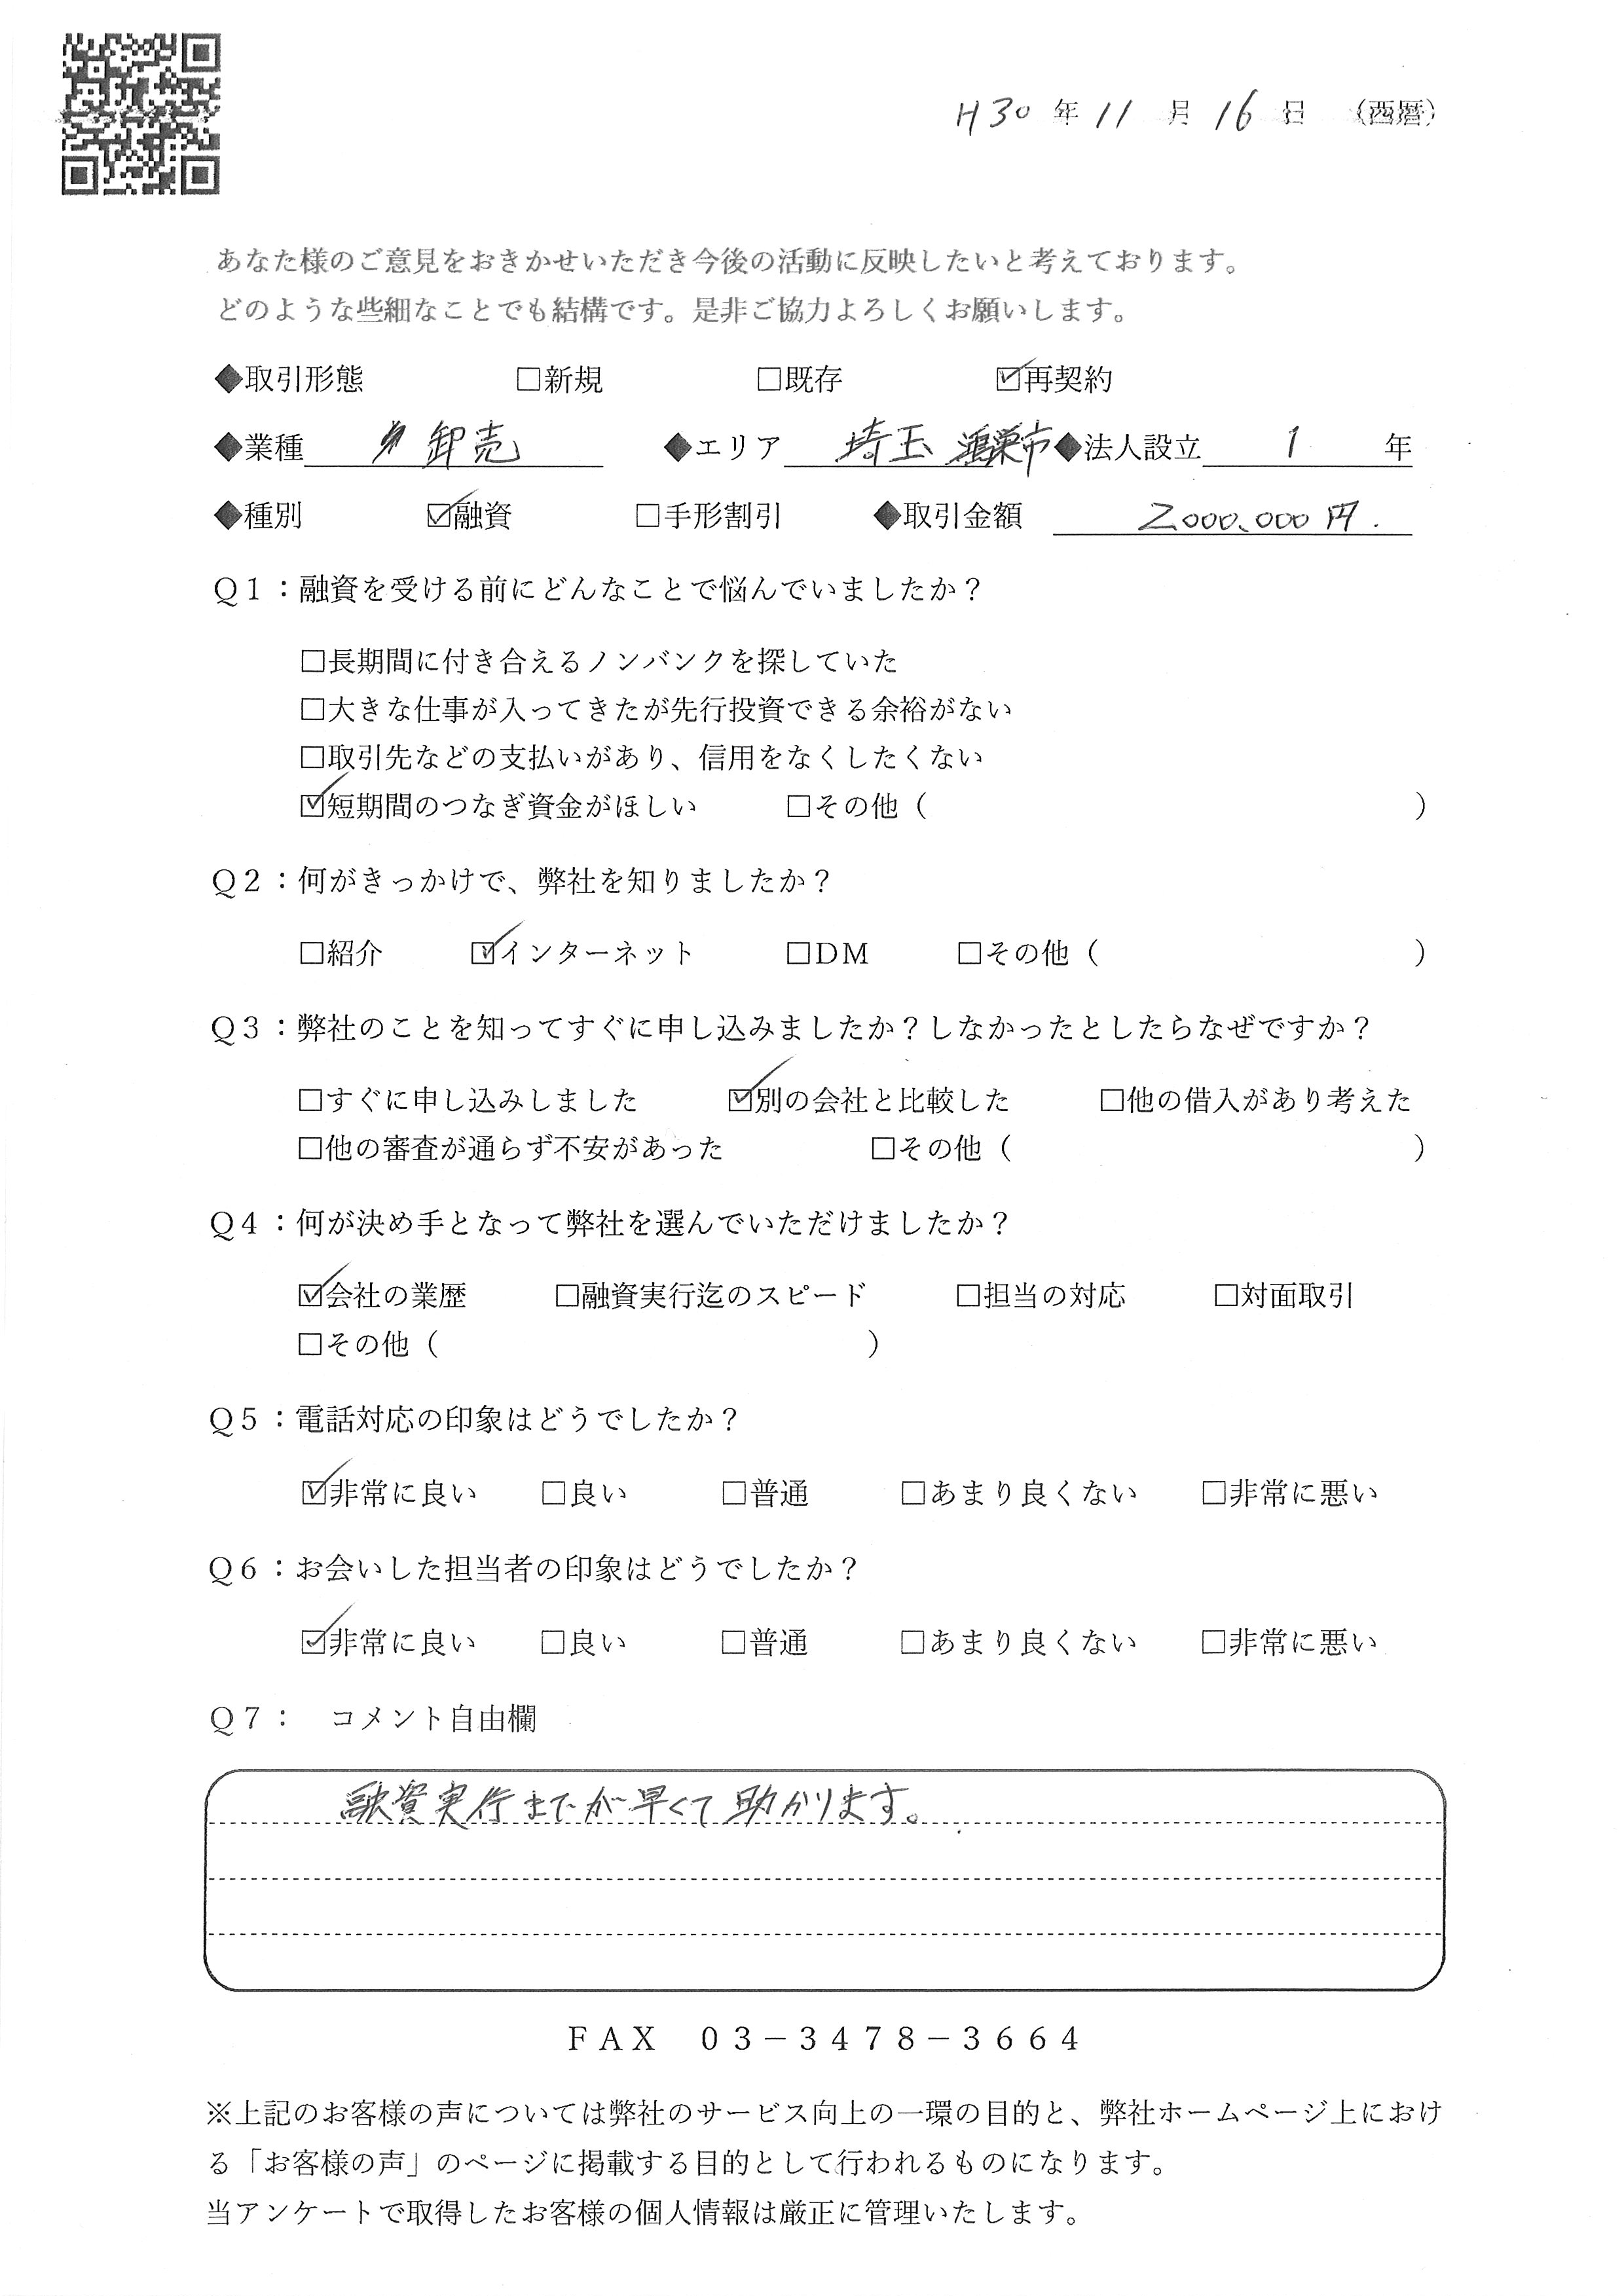 H30年11月16日 (西暦)
あなた様のご意見をおきかせいただき今後の活動に反映したいと考えております。
どのような些細なことでも結構です。是非ご協力よろしくお願いします。
◆取引形態 □新規 □既存 ☑再契約
◆業種 卸売 ◆エリア 埼玉 鴻巣市 ◆法人設立 1 年
◆種別 ☑融資 □手形割引 ◆取引金額 2000,000円.
Q1:融資を受ける前にどんなことで悩んでいましたか?
□長期間に付き合えるノンバンクを探していた
□大きな仕事が入ってきたが先行投資できる余裕がない
□取引先などの支払いがあり、信用をなくしたくない
☑短期間のつなぎ資金がほしい □その他( )
Q2:何がきっかけで、弊社を知りましたか?
□紹介 ☑インターネット □DM □その他( )
Q3:弊社のことを知ってすぐに申し込みましたか?しなかったとしたらなぜですか?
□すぐに申し込みしました ☑別の会社と比較した □他の借入があり考えた
□他の審査が通らず不安があった □その他( )
Q4:何が決め手となって弊社を選んでいただけましたか?
☑会社の業歴 □融資実行迄のスピード □担当の対応 □対面取引
□その他( )
Q5:電話対応の印象はどうでしたか?
☑非常に良い □良い □普通 □あまり良くない □非常に悪い
Q6:お会いした担当者の印象はどうでしたか?
☑非常に良い □良い □普通 □あまり良くない □非常に悪い
Q7: コメント自由欄
融資実行までが早くて助かります。
FAX 03-3478-3664
※上記のお客様の声については弊社のサービス向上の一環の目的と、弊社ホームページ上におけ
る「お客様の声」のページに掲載する目的として行われるものになります。
当アンケートで取得したお客様の個人情報は厳正に管理いたします。